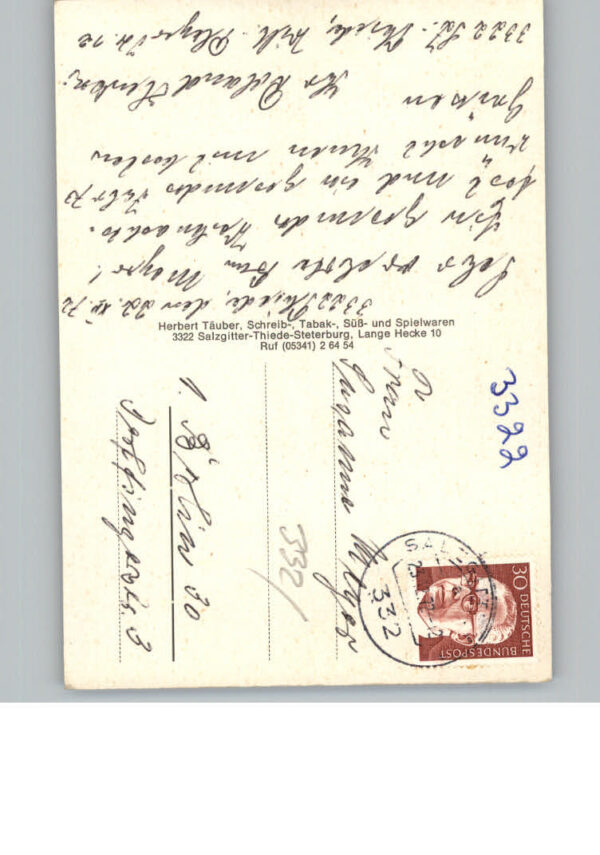 3322 Thiede, den 22. XII. 72
Sehr geehrte Frau Meyer!
Ein gesundes Weihnachts-
fest und ein gesundes Jahr 73
wünscht Ihnen mit besten
Grüßen
Ihr Roland
3322 SZ.-Thiede, Wilh.
Herbert Täuber, Schreib-, Tabak-, Süß- und Spielwaren
3322 Salzgitter-Thiede-Steterburg, Lange Hecke 10
Ruf (05341) 2 64 54
3322
Frau
Susanne Meyer
332
1. Berlin 30
332
30 DEUTSCHE
BUNDESPOST